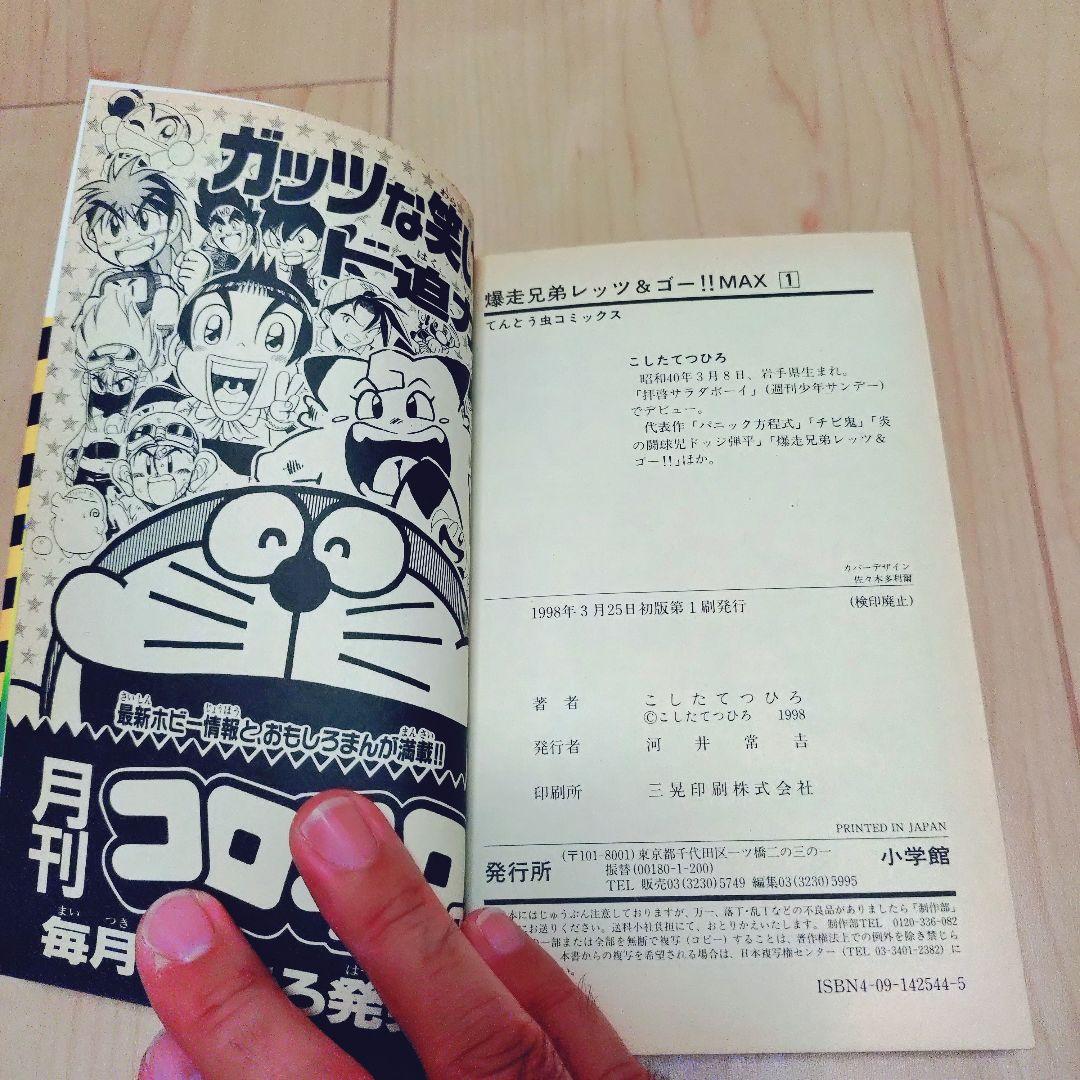 ガッツな笑い
ド迫
さいしん じょうほう まんさい
最新ホビー情報と、おもしろまんが満載!!
月刊
コロコロ
まい つき
毎月
ろ発
爆走兄弟レッツ&ゴー!!MAX 1
てんとう虫コミックス
こしたてつひろ
昭和40年3月8日、岩手県生まれ。
「拝啓サラダボーイ」(週刊少年サンデー)
でデビュー。
代表作「パニック方程式」「チビ鬼」「炎
の闘球児ドッジ弾平」「爆走兄弟レッツ&
ゴー!!」ほか。
カバーデザイン
佐々木多利爾
1998年3月25日初版第1刷発行
(検印廃止)
著者 こしたてつひろ
©こしたてつひろ 1998
発行者 河井常吉
印刷所 三晃印刷株式会社
PRINTED IN JAPAN
発行所 (〒101-8001)東京都千代田区一ツ橋二の三の一 小学館
振替(00180-1-200)
TEL 販売03(3230)5749 編集03(3230)5995
本にはじゅうぶん注意しておりますが、万一、落丁・乱丁などの不良品がありましたら「制作部」
にお送りください。送料小社負担にて、おとりかえいたします。 制作部TEL 0120-336-082
の一部または全部を無断で複写(コピー)することは、著作権法上での例外を除き禁じら
本書からの複写を希望される場合は、日本複写権センター(TEL 03-3401-2382)に
ISBN4-09-142544-5